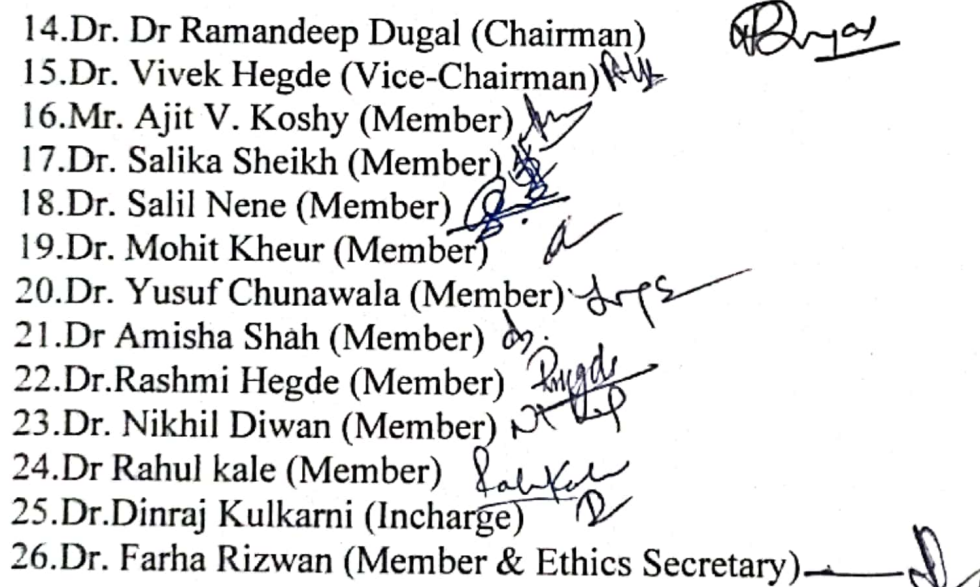 14.Dr. Dr Ramandeep Dugal (Chairman)
15.Dr. Vivek Hegde (Vice-Chairman)
16.Mr. Ajit V. Koshy (Member)
17.Dr. Salika Sheikh (Member)
18.Dr. Salil Nene (Member)
19.Dr. Mohit Kheur (Member)
20.Dr. Yusuf Chunawala (Member)
21.Dr Amisha Shah (Member)
22.Dr.Rashmi Hegde (Member)
23.Dr. Nikhil Diwan (Member)
24.Dr Rahul kale (Member)
25.Dr.Dinraj Kulkarni (Incharge)
26.Dr. Farha Rizwan (Member & Ethics Secretary)